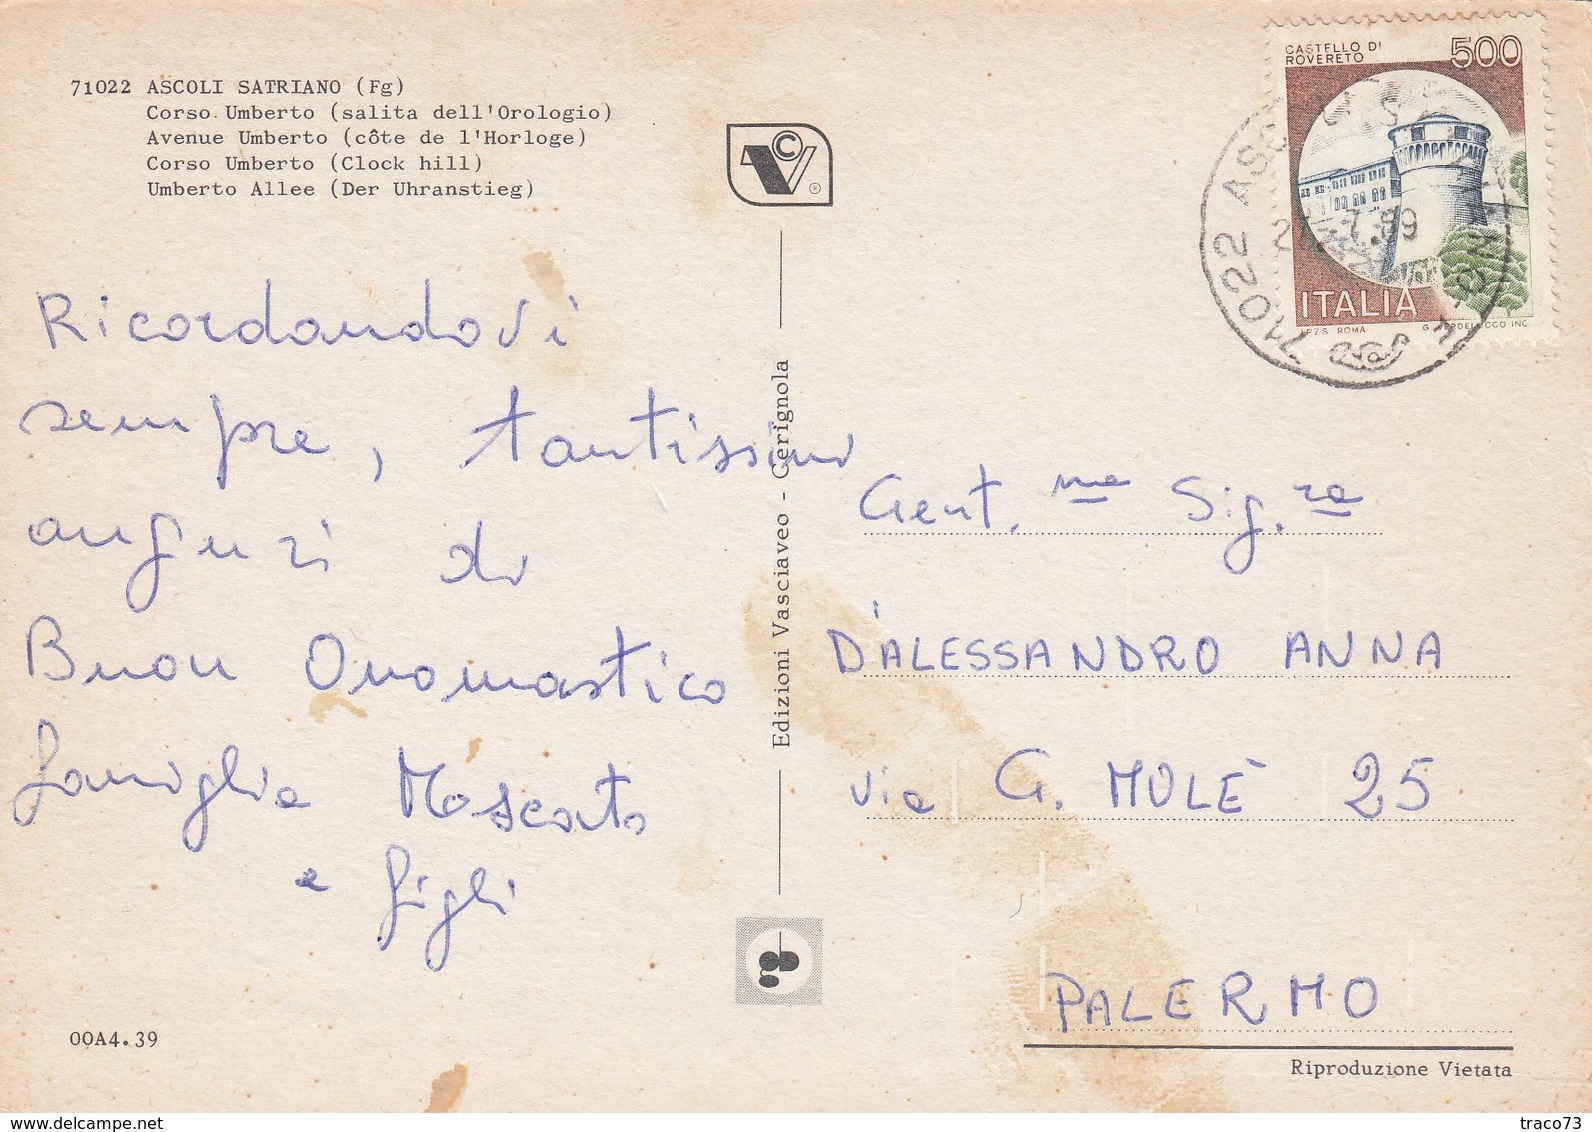 71022 ASCOLI SATRIANO (Fg)
Corso Umberto (salita dell'Orologio)
Avenue Umberto (côte de l'Horloge)
Corso Umberto (Clock hill)
Umberto Allee (Der Uhranstieg)
CASTELLO DI
ROVERETO
500
ITALIA
I.P.Z.S. ROMA
INC
71022
7.89
Ricordandovi
sempre, tantissimi
auguri di
Buon Onomastico
famiglia Moscato
e figli
Edizioni Vasciaveo - Cerignola
Gent.ma Sig.ra
D'ALESSANDRO ANNA
Via G. MULÈ 25
PALERMO
OOA4.39
Riproduzione Vietata
delcampe.net
traco73